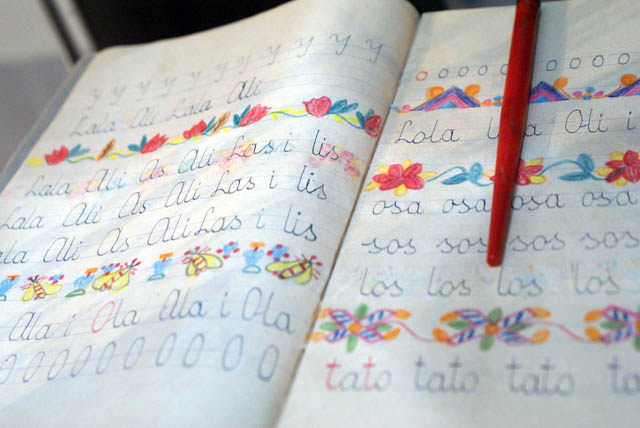 y y y y y y y y y y
Lala Ali Lala Ali
Lala Ali As Ali Las i lis
Lala Ali As Ali Las i lis
Lala Ali As Ali Las i lis
Ala i Ola Ala i Ola
O O O O O O O O O O
o o o o o o o o
Lola Ola Oli i
osa osa osa osa
sos sos sos sos
los los los los
tato tato tato tato